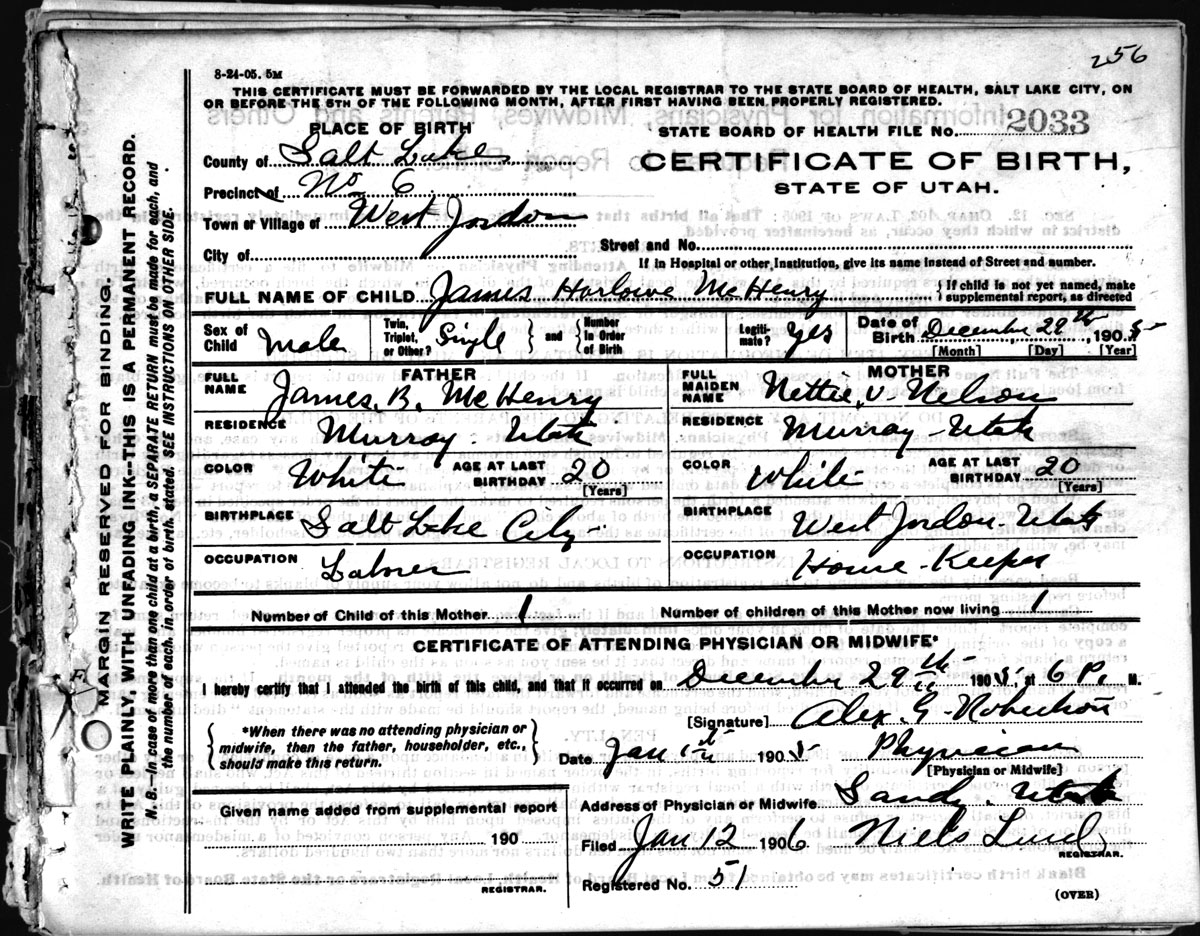 256
8-24-05. 5M
THIS CERTIFICATE MUST BE FORWARDED BY THE LOCAL REGISTRAR TO THE STATE BOARD OF HEALTH, SALT LAKE CITY, ON
OR BEFORE THE 5TH OF THE FOLLOWING MONTH, AFTER FIRST HAVING BEEN PROPERLY REGISTERED.
PLACE OF BIRTH
STATE BOARD OF HEALTH FILE No. 2033
County of Salt Lake
CERTIFICATE OF BIRTH,
STATE OF UTAH.
Precinct of No 6
Town or Village of West Jordon
Street and No.
City of
If in Hospital or other Institution, give its name instead of Street and number.
FULL NAME OF CHILD James Harlowe McHenry } If child is not yet named, make
supplemental report, as directed
Sex of Child Male
Twin, Triplet, or Other? Single } and { Number in Order of Birth
Legitimate? Yes
Date of Birth December 29th, 1905
[Month] [Day] [Year]
FATHER
MOTHER
FULL NAME James. B. McHenry
FULL MAIDEN NAME Nettie V. Nelson
RESIDENCE Murray - Utah
RESIDENCE Murray - Utah
COLOR White AGE AT LAST BIRTHDAY 20 [Years]
COLOR White AGE AT LAST BIRTHDAY 20 [Years]
BIRTHPLACE Salt Lake City
BIRTHPLACE West Jordon - Utah
OCCUPATION Laborer
OCCUPATION Home-Keeper
Number of Child of this Mother 1 Number of children of this Mother now living 1
CERTIFICATE OF ATTENDING PHYSICIAN OR MIDWIFE*
I hereby certify that I attended the birth of this child, and that it occurred on December 29th 1905, at 6 P. M.
[Signature] Alex. G. Robertson
{ *When there was no attending physician or
midwife, then the father, householder, etc.,
should make this return. }
Date Jan 1st 1905 Physician
[Physician or Midwife]
Given name added from supplemental report
190
REGISTRAR.
Address of Physician or Midwife Sandy. Utah
Filed Jan 12 1906 Niels Lind
REGISTRAR.
Registered No. 51
(OVER)
MARGIN RESERVED FOR BINDING.
WRITE PLAINLY, WITH UNFADING INK--THIS IS A PERMANENT RECORD.
N. B.--In case of more than one child at a birth, a SEPARATE RETURN must be made for each, and
the number of each, in order of birth, stated. SEE INSTRUCTIONS ON OTHER SIDE.